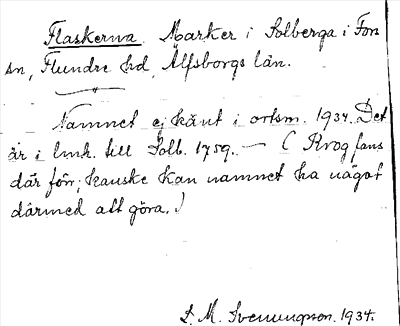 Flaskerna. Marker i Solberga i For
sn, Flundre hd, Älfsborgs län.
Namnet ej känt i ortsm. 1934. Det
är i lmh. till Solb. 1759. — ( Krog fans
där förr; kanske kan namnet ha något
därmed att göra.)
S. M. Svenungson. 1934.